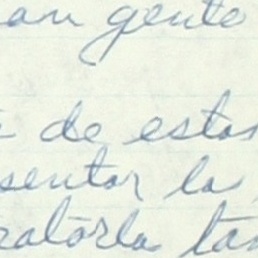 an gente
de estas
sentar la
ratarla tan